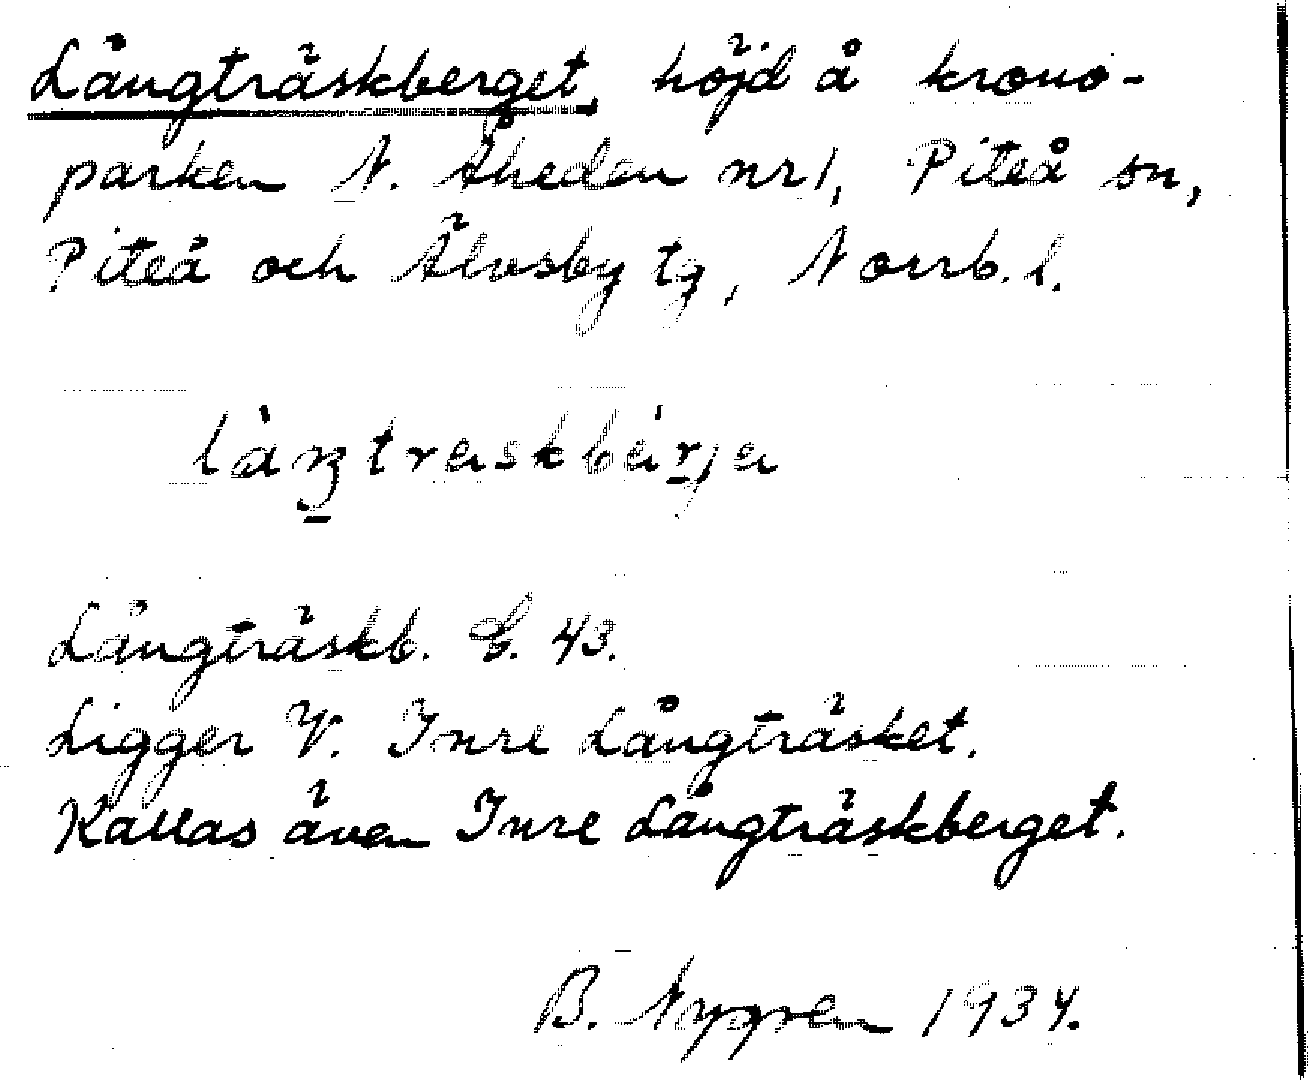 Långträskberget, höjd å krono-
parken N. Åheden nr 1, Piteå sn,
Piteå och Älvsby tg, Norrb. l.
Långträskb. G. 43.
Ligger V. Inre Långträsket.
Kallas även Inre Långträskberget.
B. Nygren 1934.